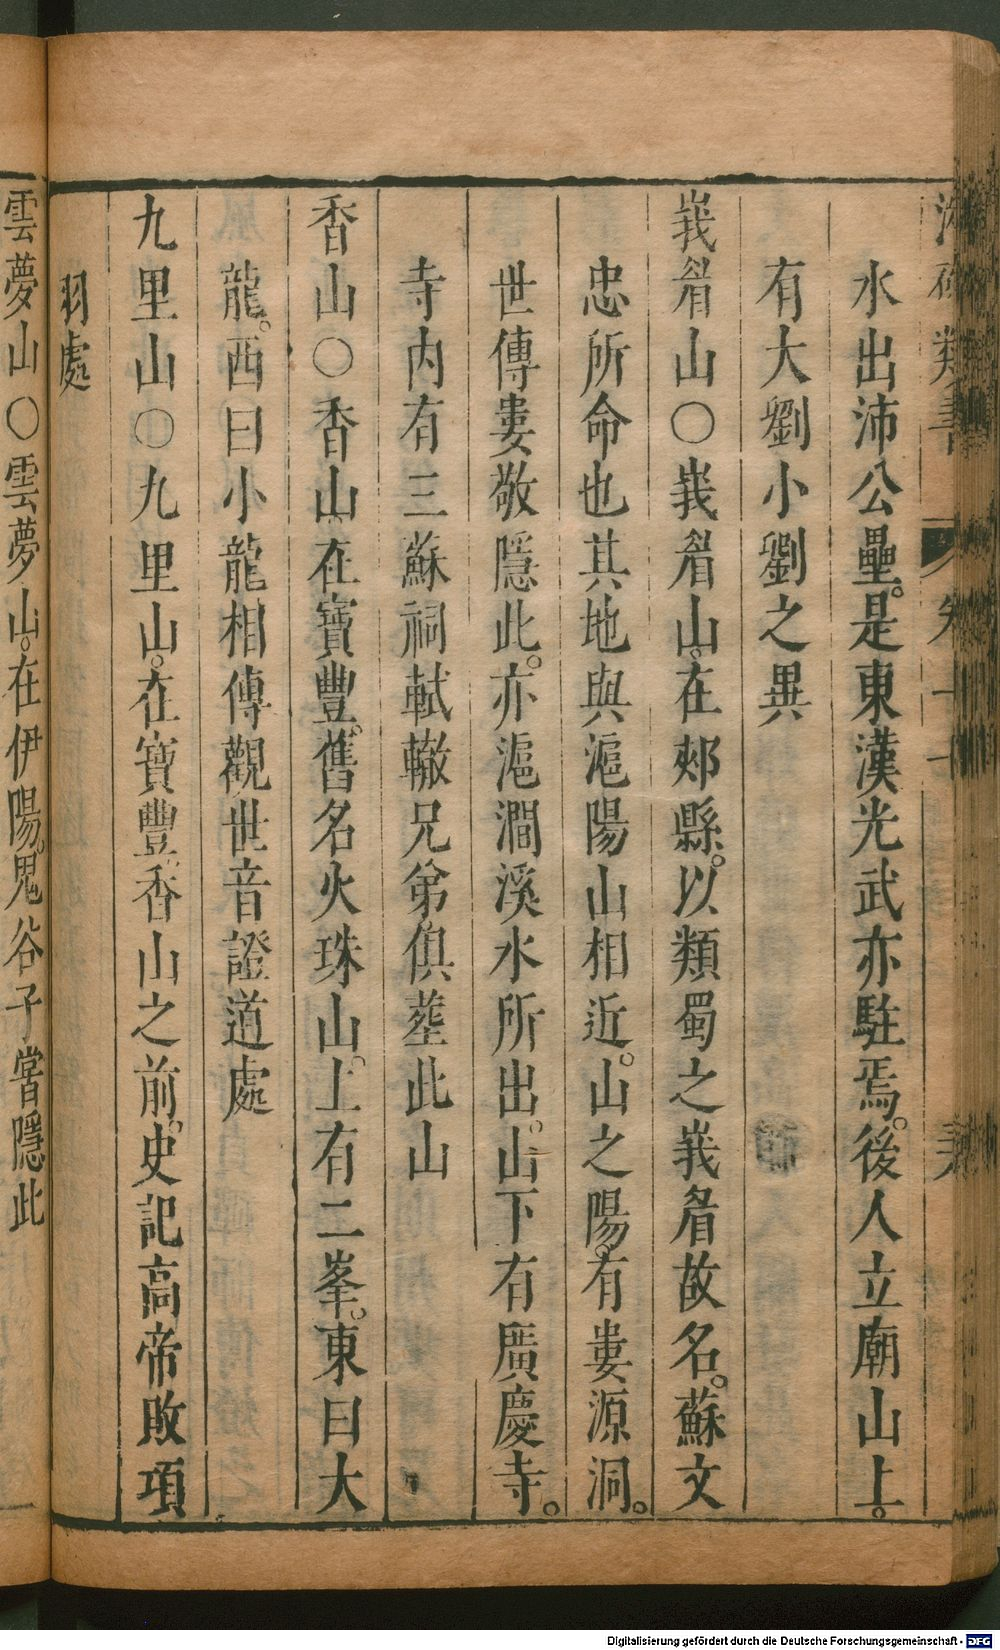 水出沛公壘。是東漢光武亦駐焉。後人立廟山上。
有大劉小劉之異
峩眉山○峩眉山。在郟縣。以類蜀之峩眉故名。蘇文
忠所命也其地與滬陽山相近。山之陽。有婁源洞。
世傳婁敬隱此。亦滬澗溪水所出。山下有廣慶寺。
寺内有三蘇祠軾轍兄弟俱塟此山
香山○香山在寶豐。舊名火珠山。上有二峯。東曰大
龍。西曰小龍相傳觀世音證道處
九里山○九里山。在寶豐。香山之前。史記高帝敗項
羽處
雲夢山○雲夢山。在伊陽。鬼谷子嘗隱此
Digitalisierung gefördert durch die Deutsche Forschungsgemeinschaft - DFG